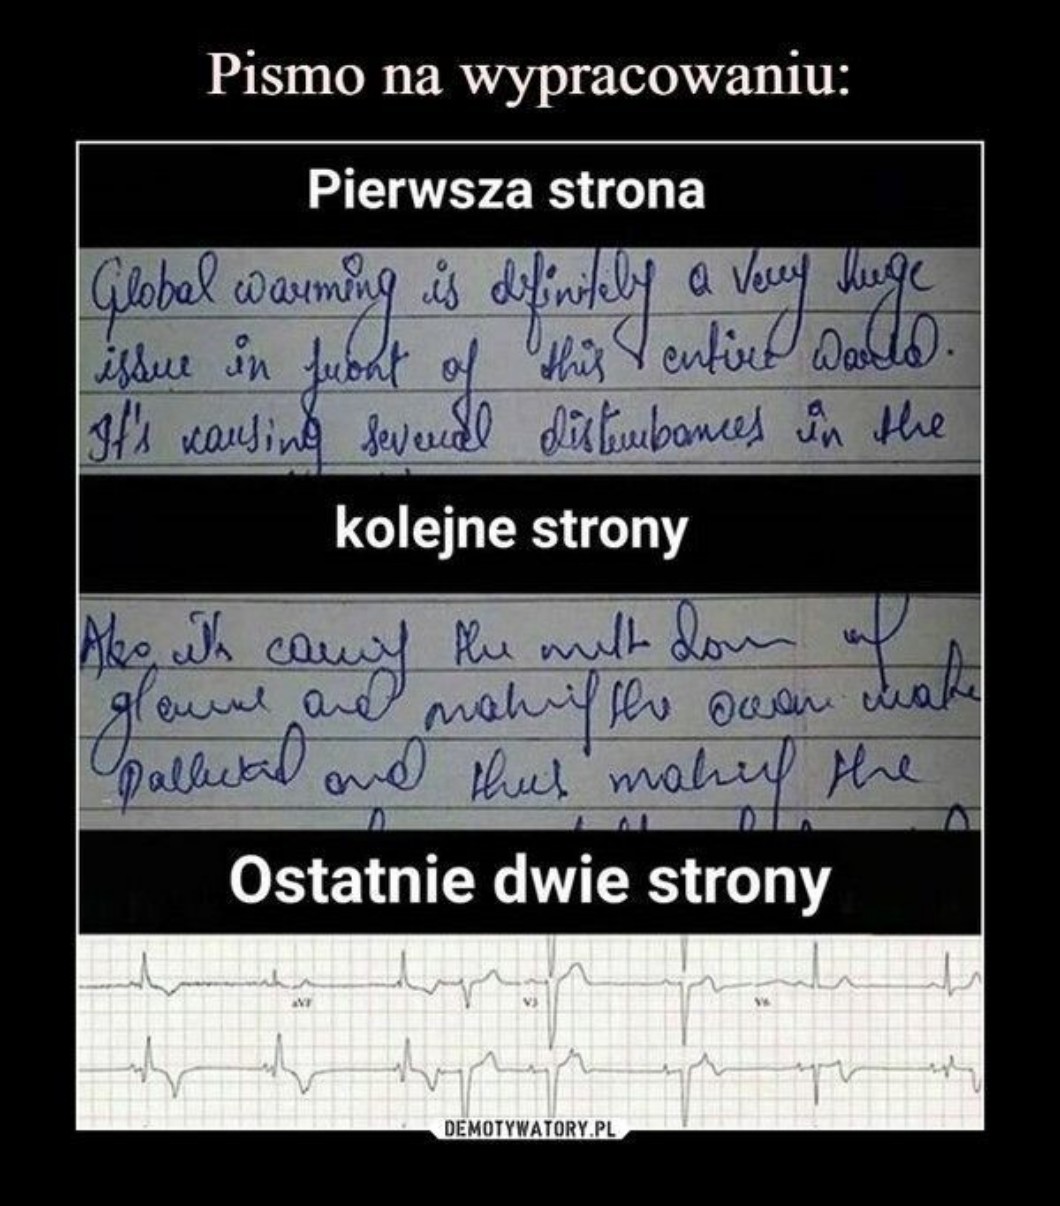 Pismo na wypracowaniu:
Pierwsza strona
Global warming is definitely a very huge
issue in front of this entire world.
It's causing several disturbances in the
kolejne strony
Also it's causing the melt down of
and making the ocean
and thus making the
Ostatnie dwie strony
aVF V3 V6
DEMOTYWATORY.PL